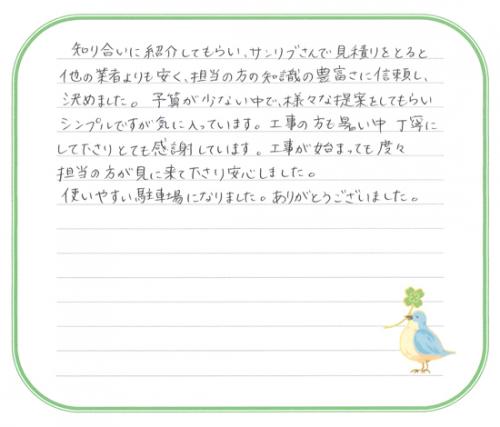 知り合いに紹介してもらい、サンリブさんで見積りをとると
他の業者よりも安く、担当の方の知識の豊富さに信頼し、
決めました。予算が少ない中で、様々な提案をしてもらい
シンプルですが気に入っています。工事の方も暑い中 丁寧に
して下さりとても感謝しています。工事が始まっても度々
担当の方が見に来て下さり安心しました。
使いやすい駐車場になりました。ありがとうございました。